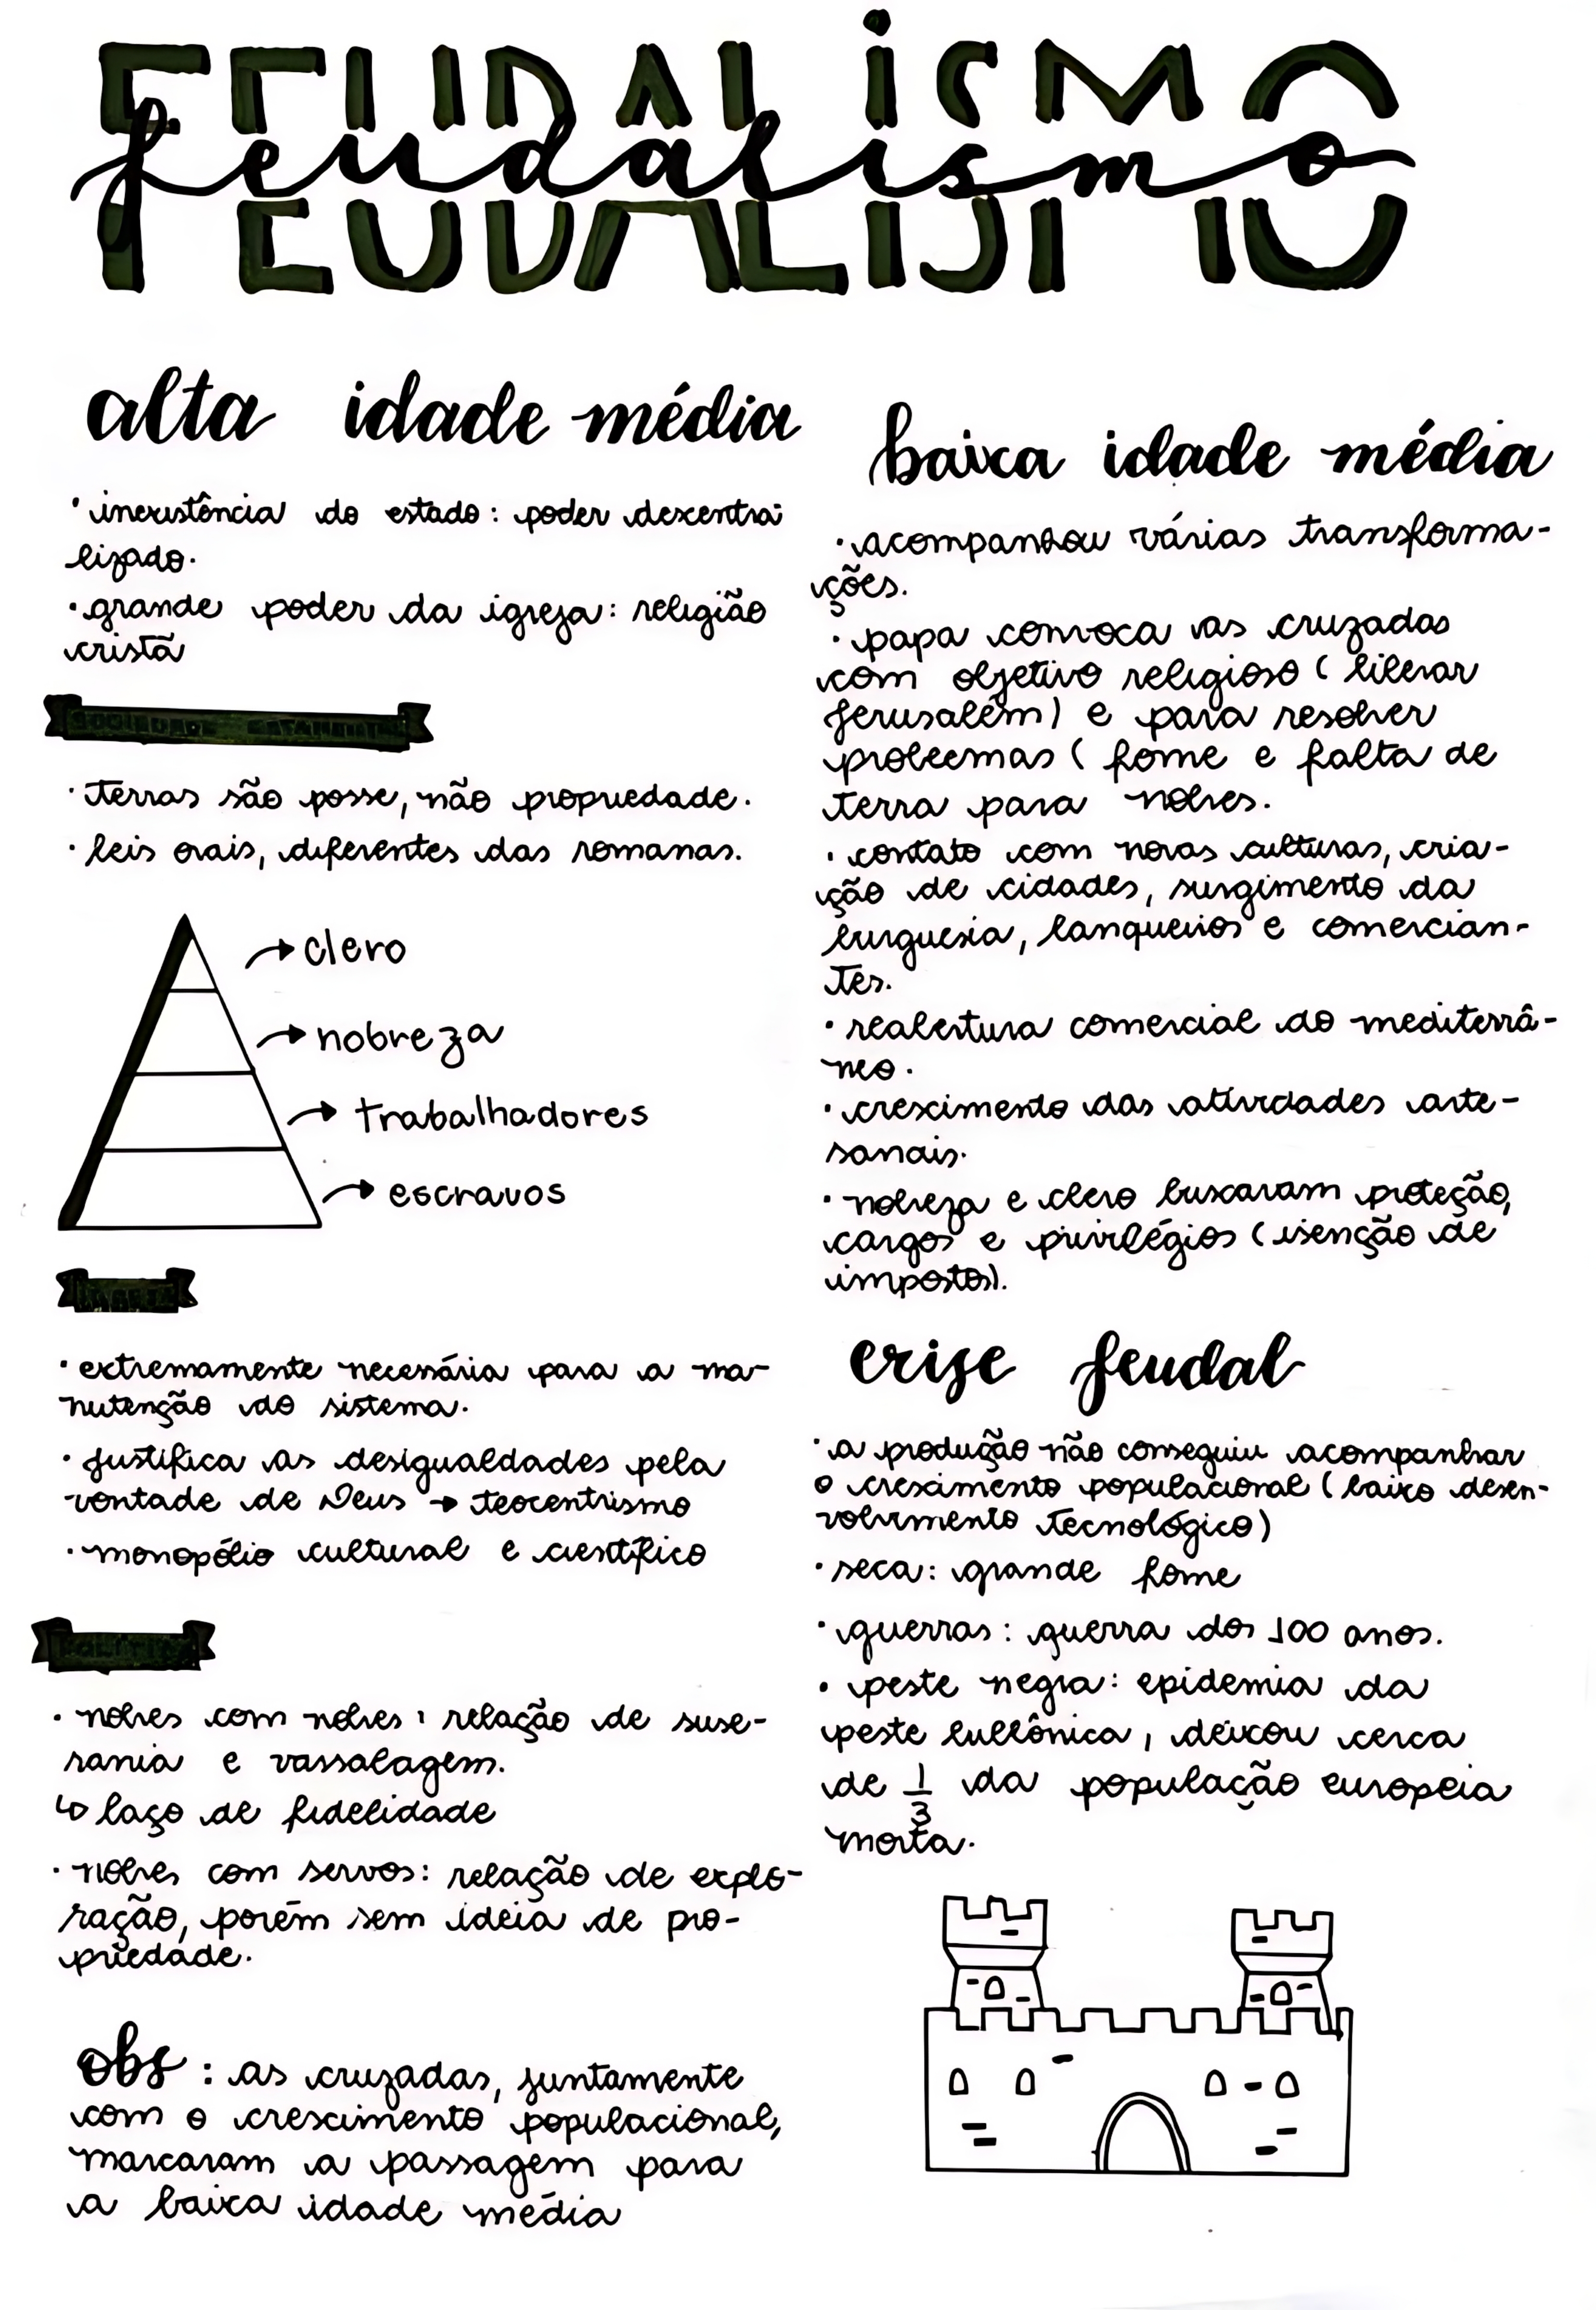 FEUDALISMO
feudalismo
FEUDALISMO
alta idade média
• inexistência do estado: poder descentra-
lizado.
• grande poder da igreja: religião
cristã
SOCIEDADE ESTAMENTAL
• terras são posse, não propriedade.
• leis orais, diferentes das romanas.
→ clero
→ nobreza
→ trabalhadores
→ escravos
IGREJA
• extremamente necessária para a ma-
nutenção do sistema.
• justifica as desigualdades pela
vontade de Deus → teocentrismo
• monopólio cultural e científico
POLÍTICA
• nobres com nobres: relação de suse-
rania e vassalagem.
↳ laço de fidelidade
• nobres com servos: relação de explo-
ração, porém sem ideia de pro-
priedade.
obs: as cruzadas, juntamente
com o crescimento populacional,
marcaram a passagem para
a baixa idade média
baixa idade média
• acompanhou várias transforma-
ções.
• papa convoca as cruzadas
com objetivo religioso (liberar
Jerusalém) e para resolver
problemas (fome e falta de
terra para nobres.
• contato com novas culturas, cria-
ção de cidades, surgimento da
burguesia, banqueiros e comercian-
tes.
• reabertura comercial do mediterrâ-
neo.
• crescimento das atividades arte-
sanais.
• nobreza e clero buscavam proteção,
cargos e privilégios (isenção de
impostos).
crise feudal
• a produção não conseguiu acompanhar
o crescimento populacional (baixo desen-
volvimento tecnológico)
• seca: grande fome
• guerras: guerra dos 100 anos.
• peste negra: epidemia da
peste bubônica, deixou cerca
de 1/3 da população europeia
morta.